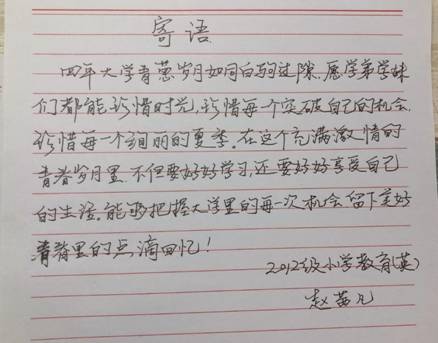 寄语
四年大学青葱岁月如同白驹过隙.愿学弟学妹
们都能珍惜时光,珍惜每一个突破自己的机会.
珍惜每一个绚丽的夏季.在这个充满激情的
青春岁月里.不但要好好学习,还要好好享受自己
的生活.能够把握大学里的每一次机会留下美好
青春里的点滴回忆!
2012级小学教育(英)
赵苗凡